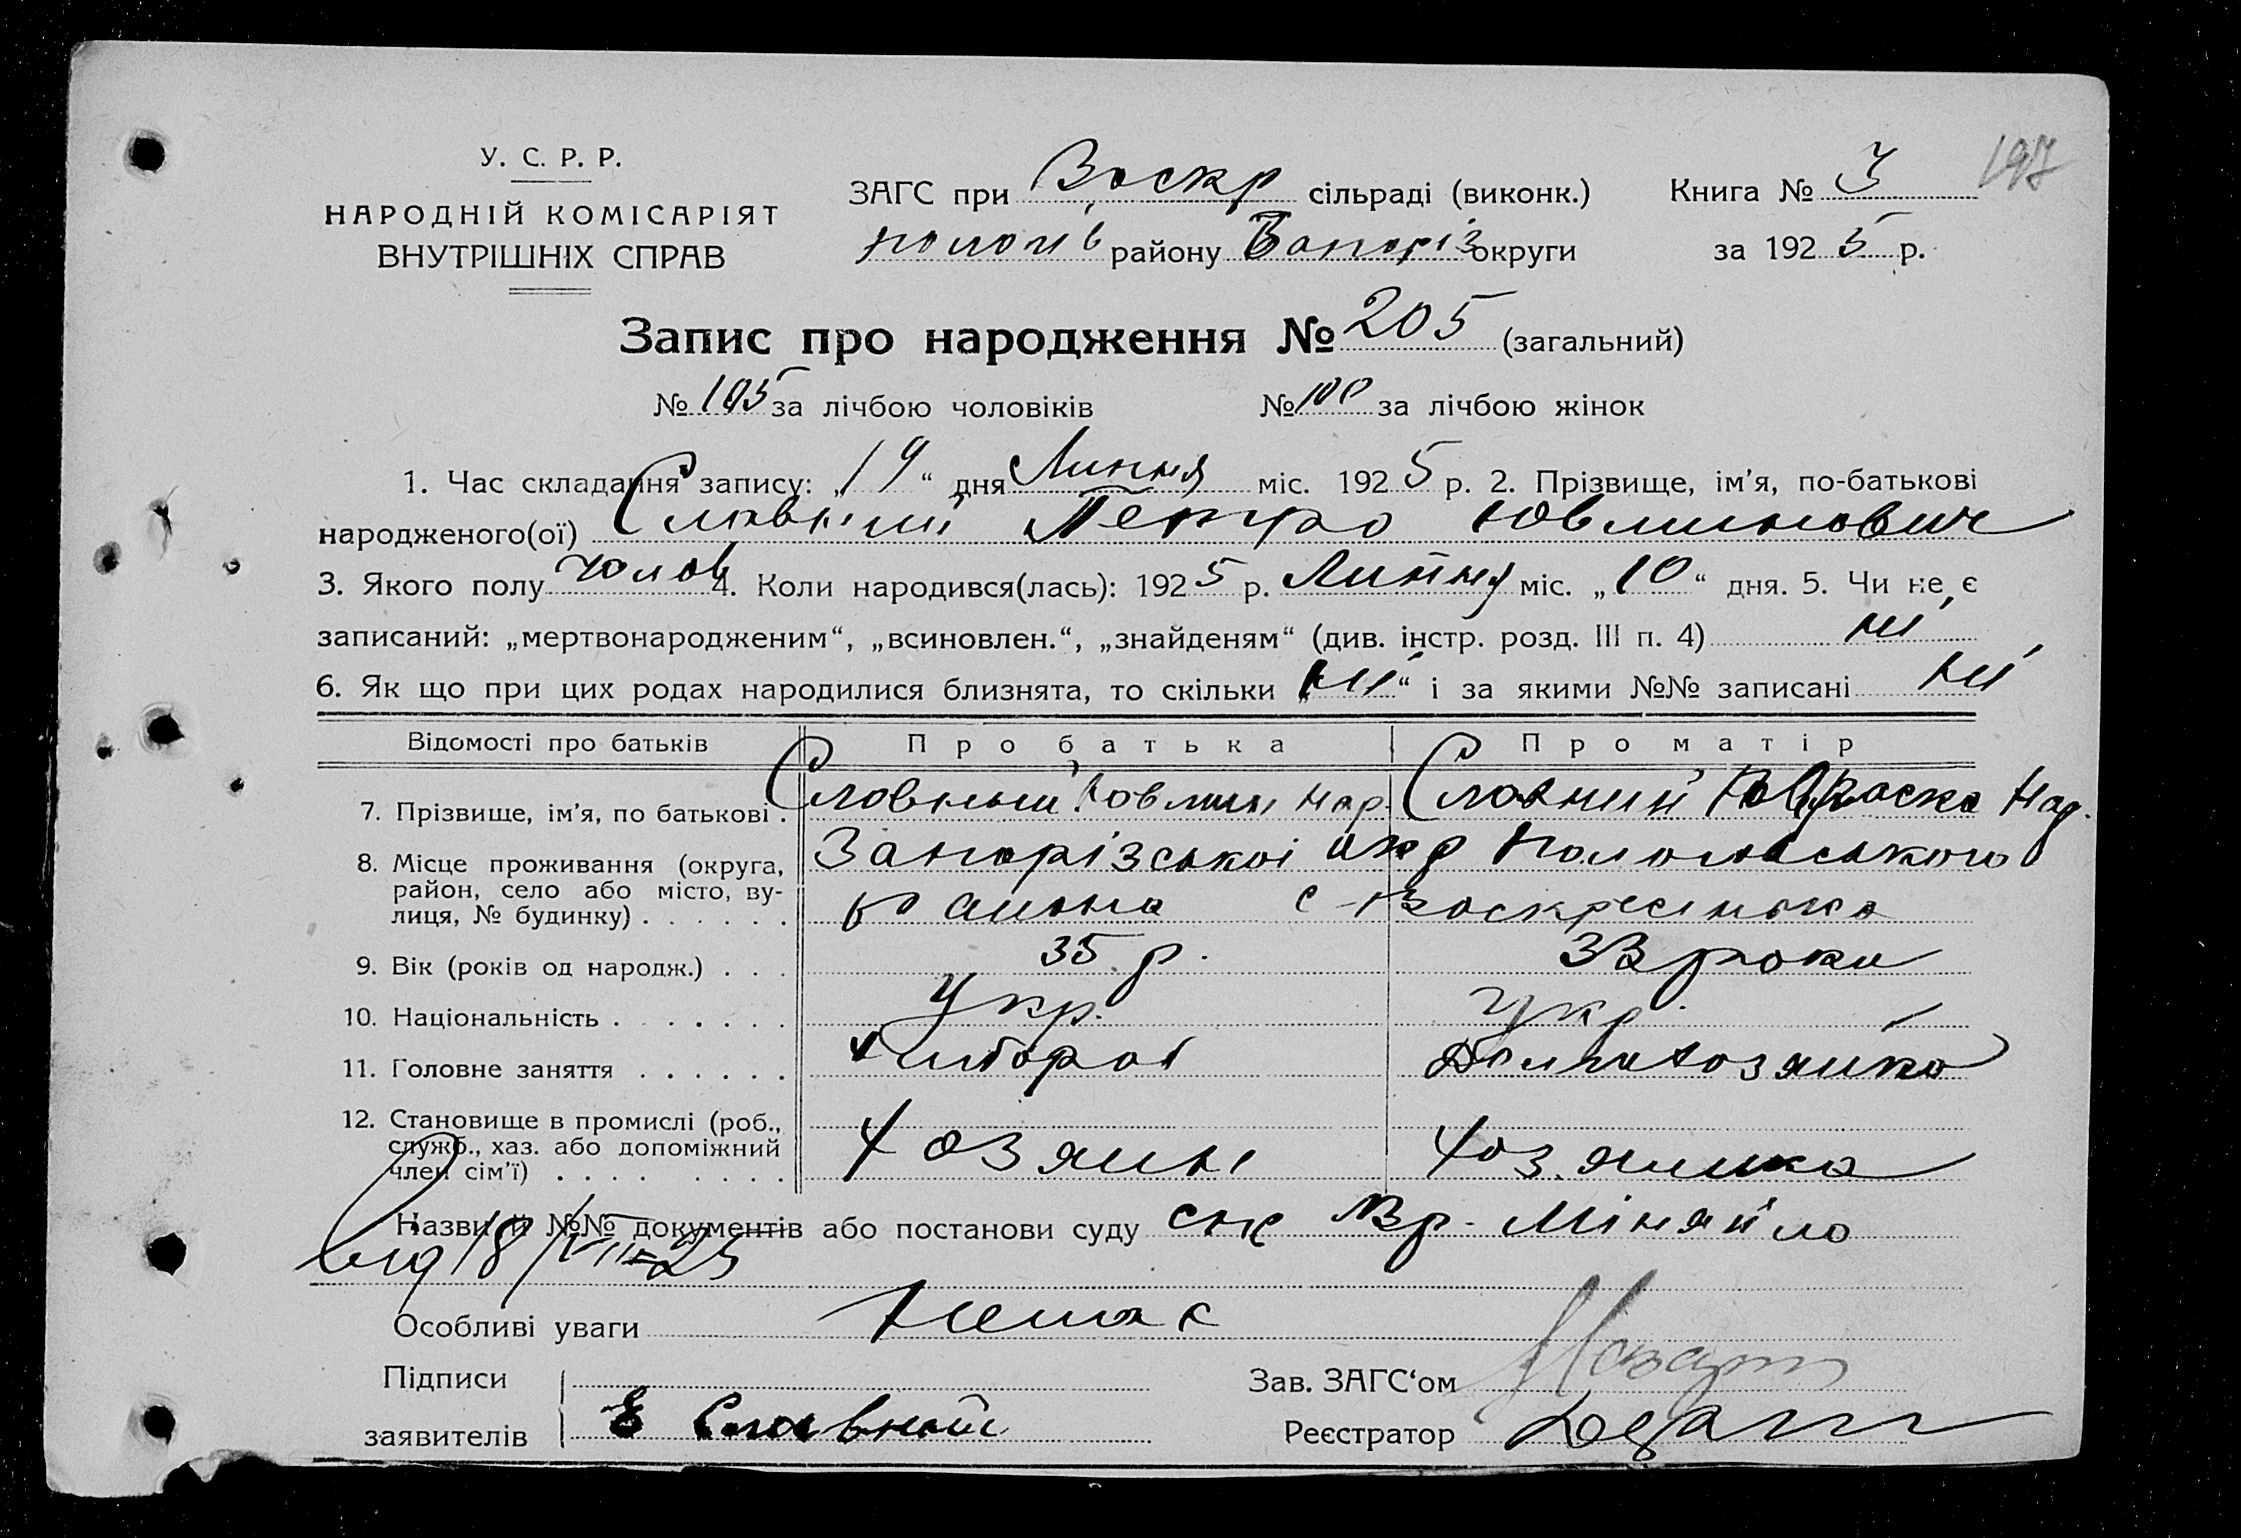 197
У. С. Р. Р.
НАРОДНІЙ КОМІСАРІЯТ
ВНУТРІШНІХ СПРАВ
ЗАГС при Воскр сільраді (виконк.) Книга № 3
пологів району Запоріз округи за 1925 р.
Запис про народження № 205 (загальний)
№ 105 за лічбою чоловіків № 100 за лічбою жінок
1. Час складання запису: „19“ дня Липня міс. 1925 р. 2. Прізвище, ім'я, по-батькові
народженого(ої) Славний Петро Ювлинович
3. Якого полу чолов 4. Коли народився(лась): 1925 р. Липня міс. „10“ дня. 5. Чи не є
записаний: „мертвонародженим“, „всиновлен.“, „знайденям“ (див. інстр. розд. III п. 4) ні
6. Як що при цих родах народилися близнята, то скільки „ні“ і за якими №№ записані ні
Відомості про батьків Про батька Про матір
7. Прізвище, ім'я, по батькові . Славный Ювлин Нар. Славний Нар.
8. Місце проживання (округа, район, село або місто, вулиця, № будинку) . . . . . . Запорізської окр Пологовського
району с Воскресенька
9. Вік (років од народж.) . . . 35 р. 33 роки
10. Національність . . . . . . . Укр. Укр.
11. Головне заняття . . . . . . Хлібороб Домохозяйка
12. Становище в промислі (роб., служб., хаз. або допоміжний член сім'ї) . . . . . . . . Хозяин Хозяика
Назви й №№ документів або постанови суду Вр. Міняйло
від 18/VII-25
Особливі уваги Немає
Підписи заявителів Е Славный
Зав. ЗАГС‘ом
Реєстратор